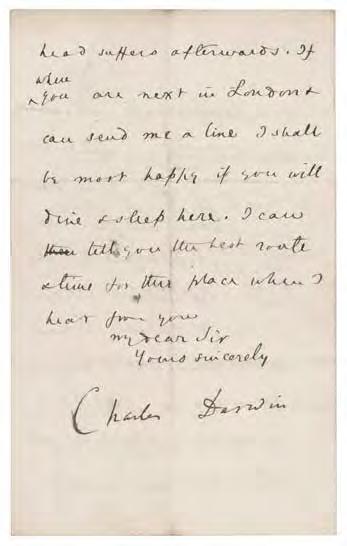 head suffers afterwards. If
when
^ you are next in London &
can send me a line I shall
be most happy if you will
dine & sleep here. I can
then tell you the best route
& time for this place when I
hear from you
my dear Sir
Yours sincerely
Charles Darwin